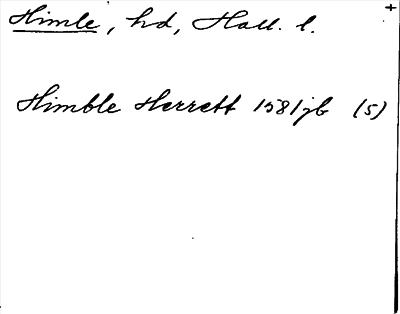 +
Himle, hd, Hall. l.
Himble Herrett 1581 jb (5)